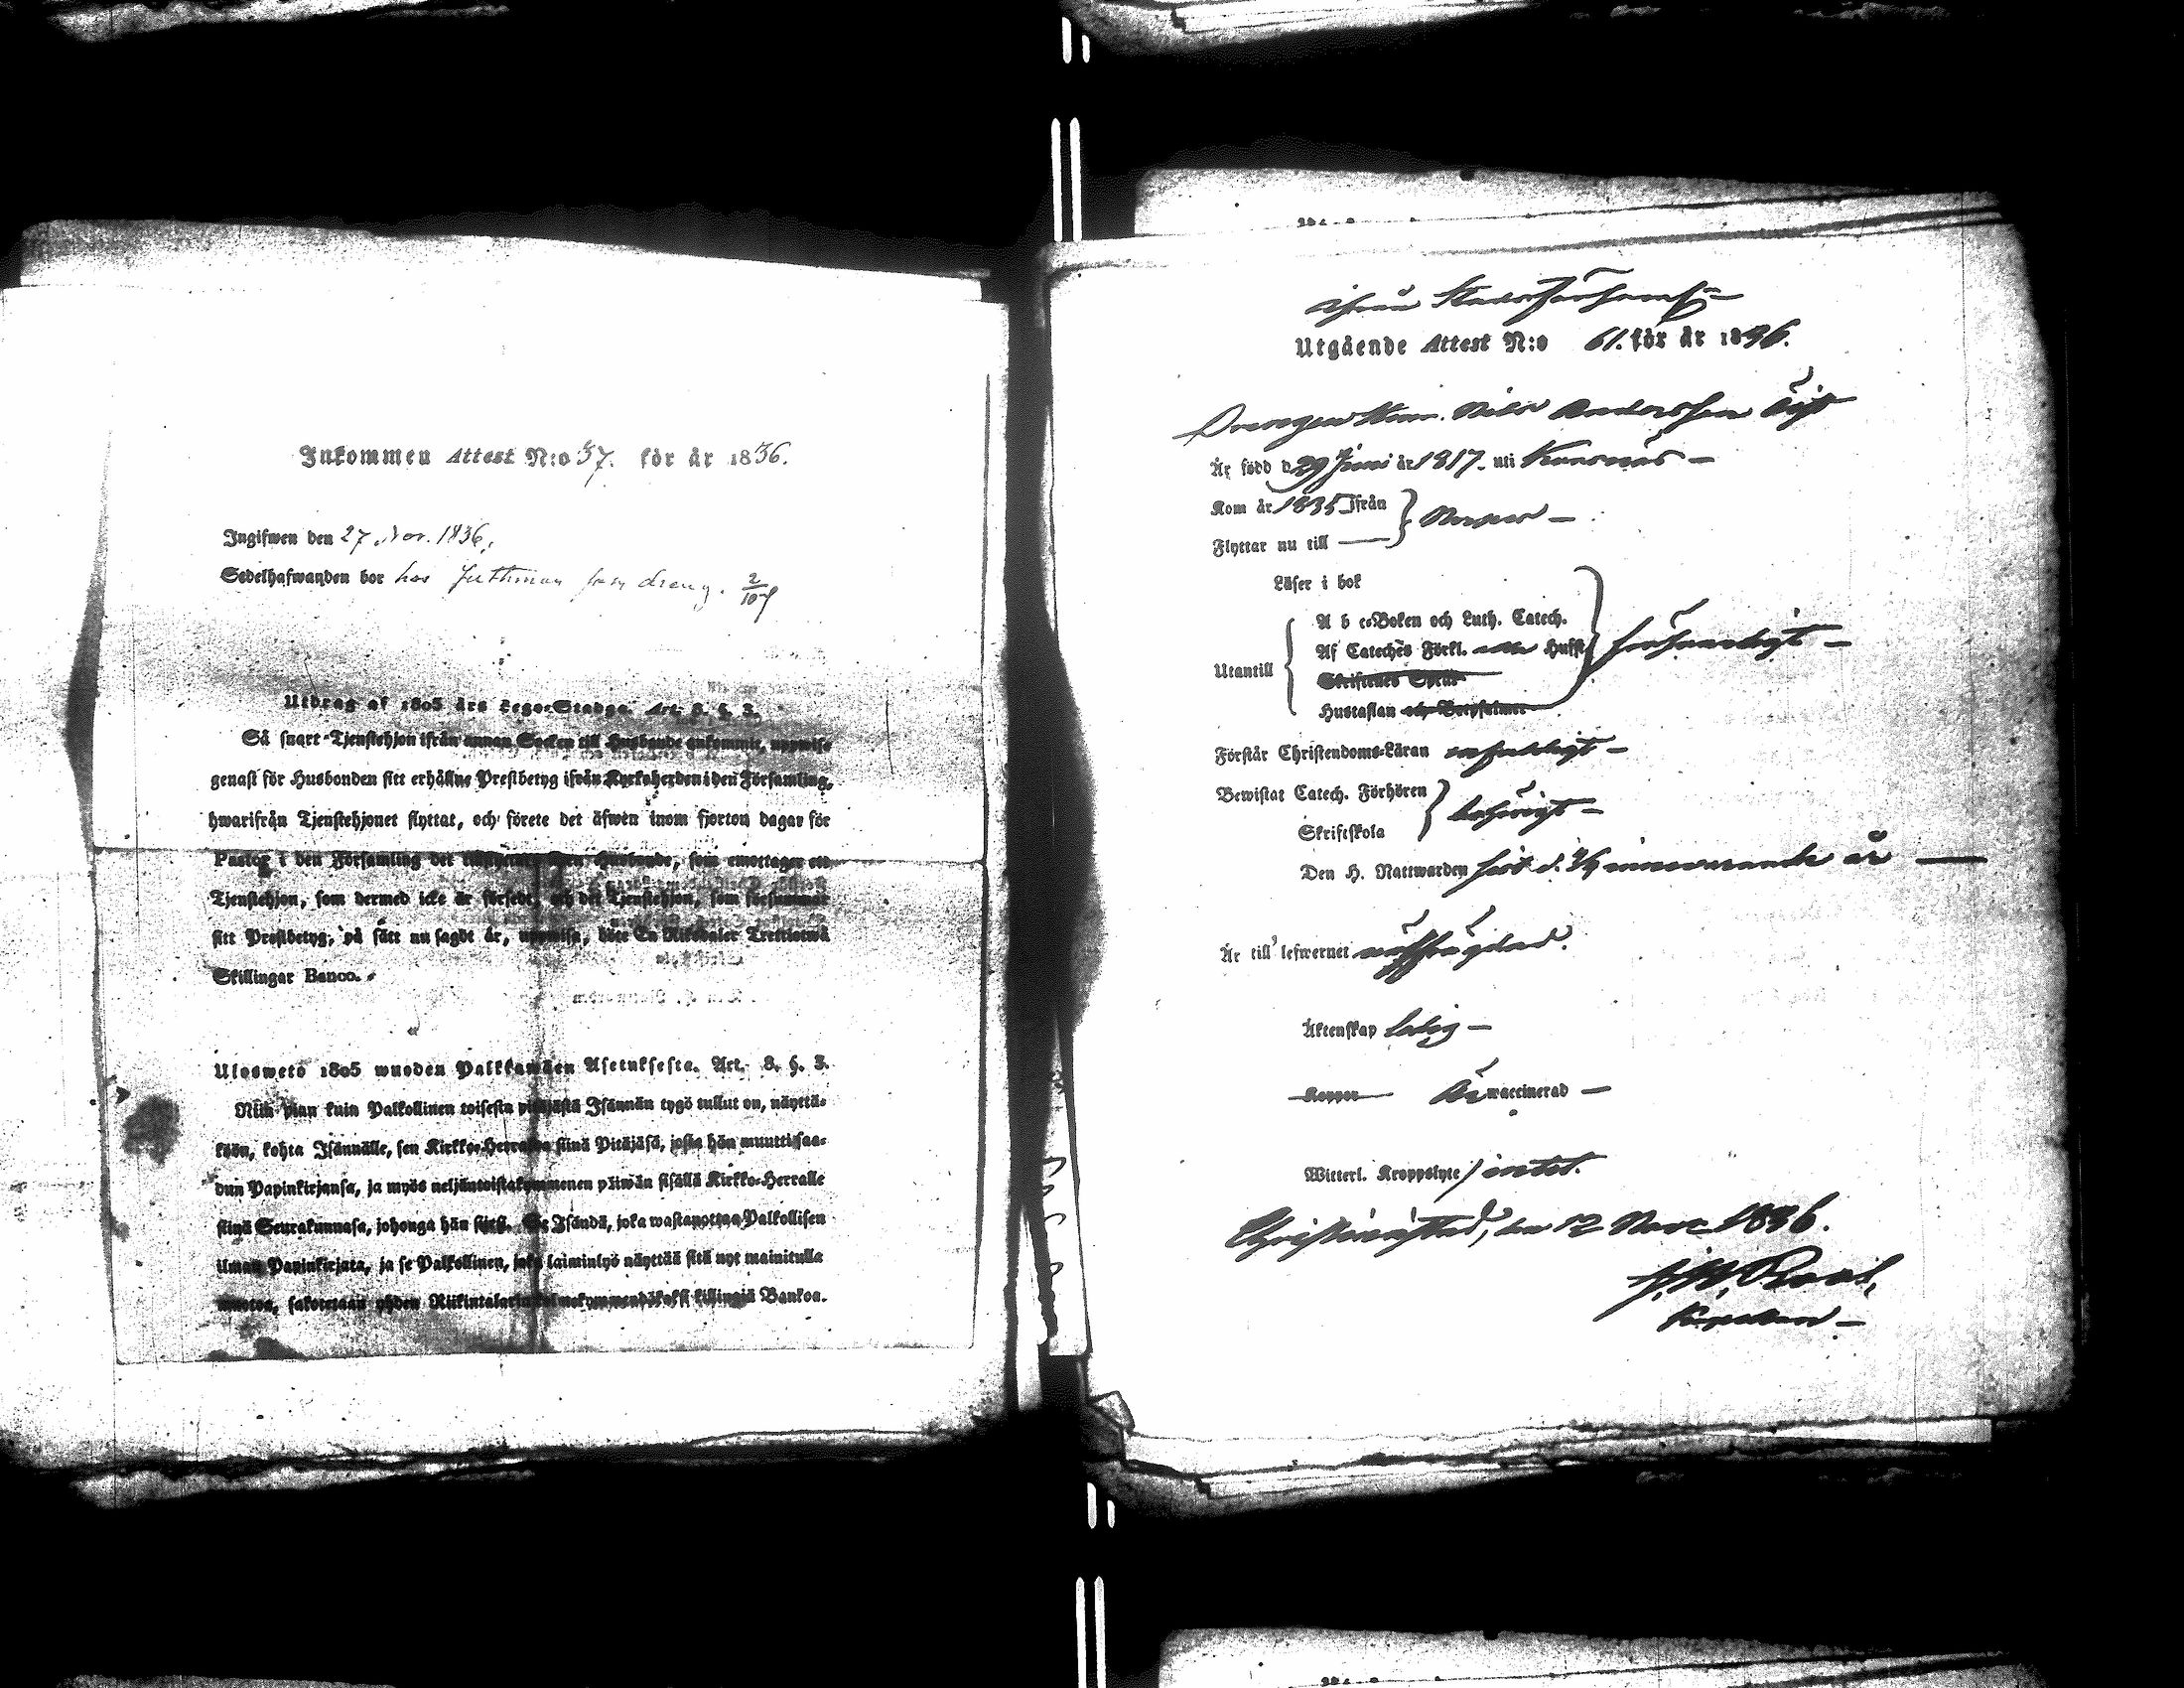 Inkommen Attest N:o 57. för år 1836.
Ingifwen den 27 Nov. 1836.
Sedelhafwanden bor hos Juthman som dreng. 2/10
Utdrag af 1805 års Lego-Stadga. Art. 8. §. 3.
Så snart Tjenstehjon ifrån annan Socken till Husbonde ankommit, uppwise
genast för Husbonden sitt erhållne Prestbetyg ifrån Kyrkoherden i den Församling,
hwarifrån Tjenstehjonet flyttat, och förete det äfwen inom fjorton dagar för
Pastor i den Församling det Husbonde, som emottager ett
Tjenstehjon, som dermed icke är försedt, och det Tjenstehjon, som försummar
sitt Prestbetyg, på sätt nu sagdt är, uppwisa, böte En Riksdaler Trettiotwå
Skillingar Banco.
Uloswetö 1805 wuoden Palkkawäen Asetuksesta. Art. 8. §. 3.
Niin pian kuin Palkollinen toisesta pitäjästä Isännän tygö tullut on, näyttä-
köön, kohta Isännälle, sen Kirkko-Herralda siinä Pitäjäsä, josta hän muutti, saa-
dun Papinkirjansa, ja myös neljäntoistakymmenen päiwän sisällä Kirkko-Herralle
siinä Seurakunnasa, johonga hän siirsi. Se Isändä, joka wastanottaa Palkollisen
ilman Papinkirjata, ja se Palkollinen, joka laiminlyö näyttää sitä nyt mainitulla
muotoa, sakotetaan yhden Riikintalarin kolmekymmendäkaksi killingiä Bankoa.
ifrån Stadsförsaml:n
Utgående Attest N:o 61. för år 1836.
Drengen Nils Andersson
Är född d. 29 Juni år 1817. uti
Kom år 1835 Ifrån
Flyttar nu till
Läser i bok
A b c-Boken och Luth. Catech.
Utantill
Af Cateches Förkl. Husst.
Skriftenes Språk
Hustaflan och Botpsalmer
försvarligt
Förstår Christendoms-Läran enfaldigt
Bewistat Catech. Förhören
Skriftskola
behörigt
Den H. Nattwarden sist d. innevarande år
Är till lefwernet välfrägdad.
Äktenskap ledig
Koppor Är waccinerad
Witterl. Kroppslyte intet.
Christinæstad, den 12 Nov. 1836.